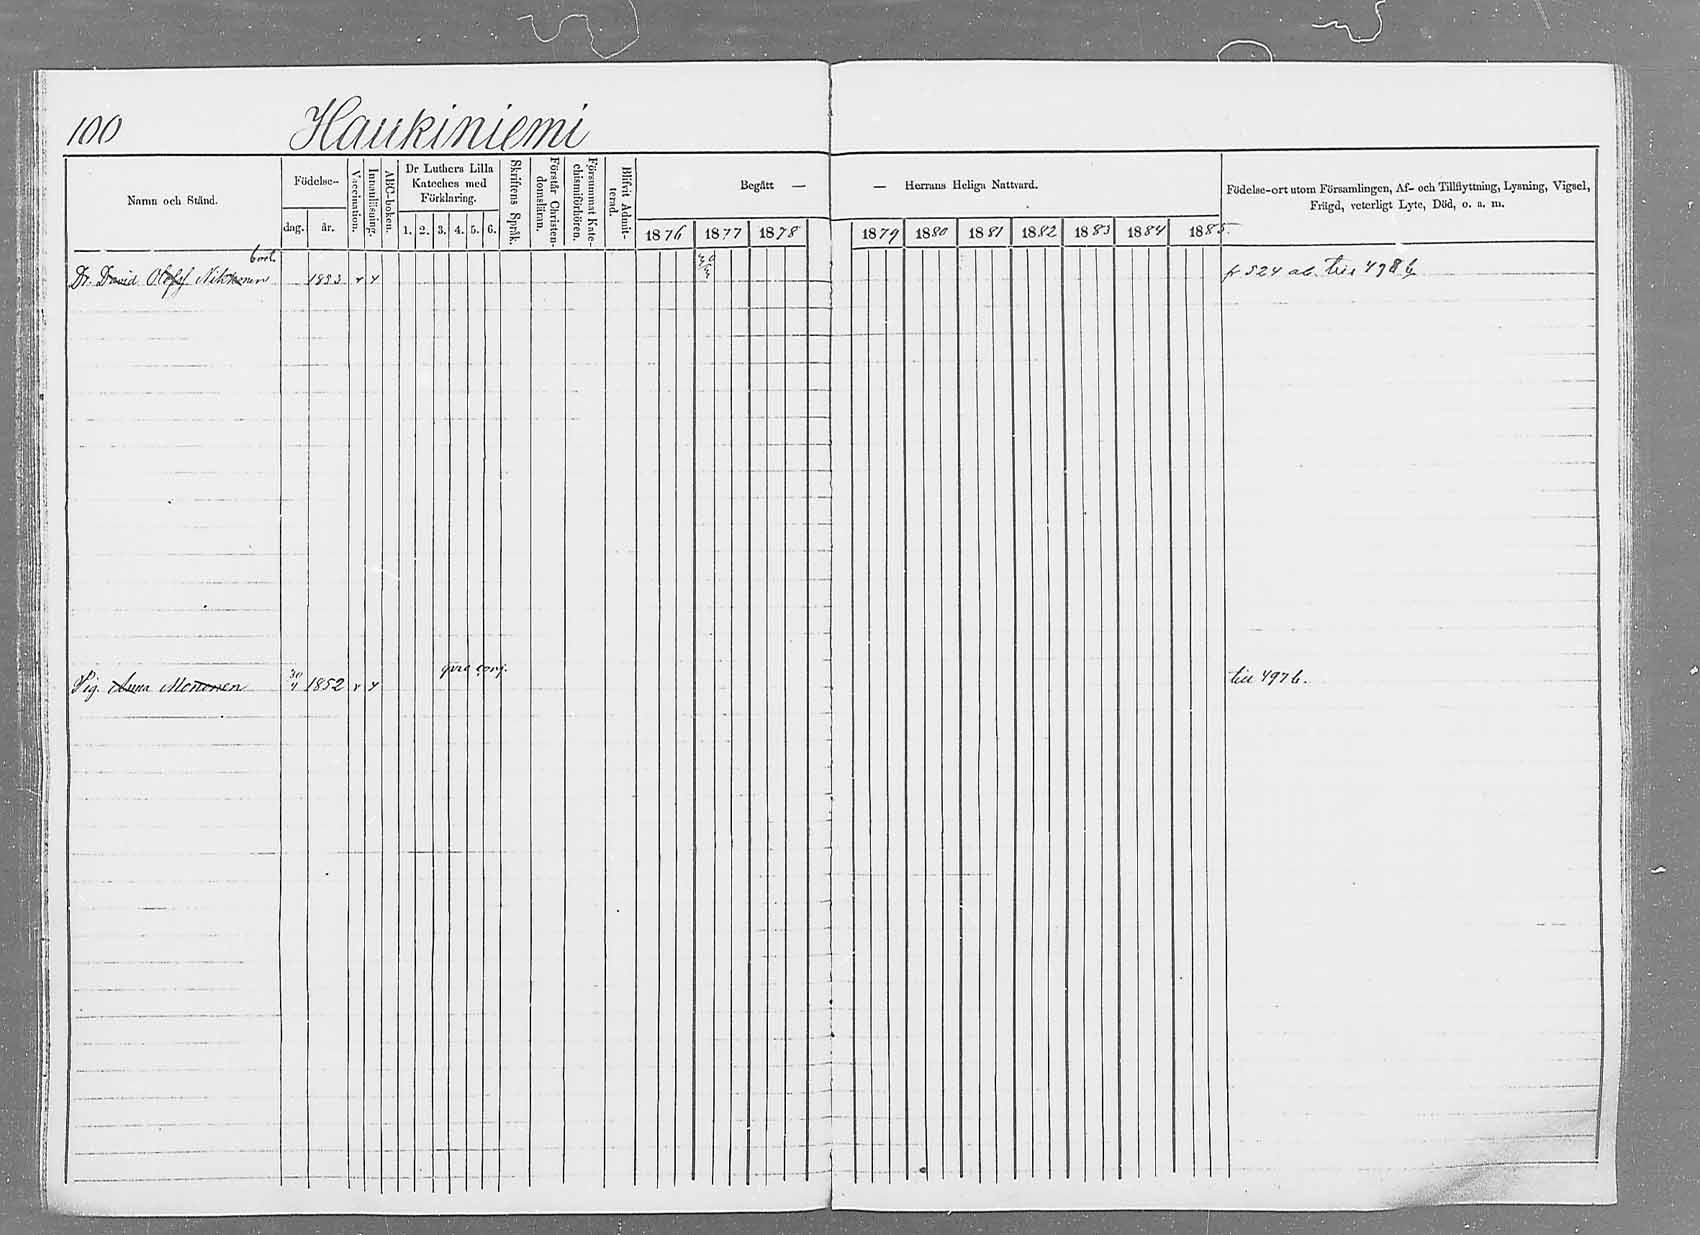 100 Haukiniemi
Namn och Stånd.
Födelse-
dag. år.
Vaccination.
Innanläsning.
ABC-boken.
Dr Luthers Lilla
Kateches med
Förklaring.
1. 2. 3. 4. 5. 6.
Skriftens Språk.
Förstår Christen-
domsläran.
Försummat Kate-
chismiförhören.
Blifvit Admit-
terad.
Begått — — Herrans Heliga Nattvard.
1876 1877 1878 1879 1880 1881 1882 1883 1884 1885
Födelse-ort utom Församlingen, Af- och Tillflyttning, Lysning, Vigsel,
Frägd, veterligt Lyte, Död, o. a. m.
Dr. David Olof 1853 v
fr 524 ab. till 498 b
Pig. Anna Mononen 30/4 1852 v
till 497 b.